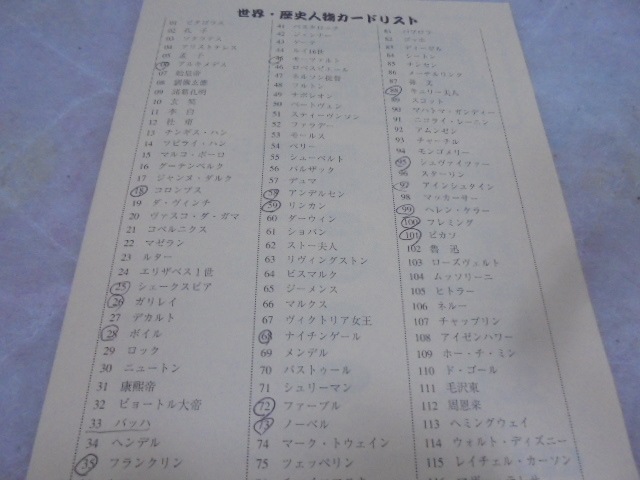 世界・歴史人物カードリスト
02 孔子
03 ソクラテス
04 アリストテレス
05 孟子
06 アルキメデス
07 始皇帝
09 諸葛孔明
10 玄奘
11 李白
12 杜甫
13 チンギス・ハン
14 フビライ・ハン
15 マルコ・ポーロ
16 グーテンベルク
17 ジャンヌ・ダルク
18 コロンブス
19 ダ・ヴィンチ
20 ヴァスコ・ダ・ガマ
21 コペルニクス
22 マゼラン
23 ルター
24 エリザベス1世
25 シェークスピア
26 ガリレイ
27 デカルト
28 ボイル
29 ロック
30 ニュートン
31 康熙帝
32 ピョートル大帝
33 バッハ
34 ヘンデル
35 フランクリン
42 ジェンナー
43 ゲーテ
44 ルイ16世
45 モーツァルト
46 ロベスピエール
47 ネルソン提督
48 フルトン
49 ナポレオン
50 ベートーヴェン
51 スティーヴンソン
52 ファラデー
53 モールス
54 ペリー
55 シューベルト
56 バルザック
57 デュマ
58 アンデルセン
59 リンカン
60 ダーウィン
61 ショパン
62 ストー夫人
63 リヴィングストン
64 ビスマルク
65 ジーメンス
66 マルクス
67 ヴィクトリア女王
68 ナイチンゲール
69 メンデル
70 パストゥール
71 シュリーマン
72 ファーブル
73 ノーベル
74 マーク・トウェイン
75 ツェッペリン
82 ゴッホ
83 ディーゼル
84 シートン
85 ナンセン
86 メーテルリンク
87 孫文
88 キュリー夫人
89 スコット
90 マハトマ・ガンディー
91 ニコライ・レーニン
92 アムンゼン
93 チャーチル
94 モンゴメリー
95 シュヴァイツァー
96 スターリン
97 アインシュタイン
98 マッカーサー
99 ヘレン・ケラー
100 フレミング
101 ピカソ
102 魯迅
103 ローズヴェルト
104 ムッソリーニ
105 ヒトラー
106 ネルー
107 チャップリン
108 アイゼンハワー
109 ホー・チ・ミン
110 ド・ゴール
111 毛沢東
112 周恩来
113 ヘミングウェイ
114 ウォルト・ディズニー
115 レイチェル・カーソン